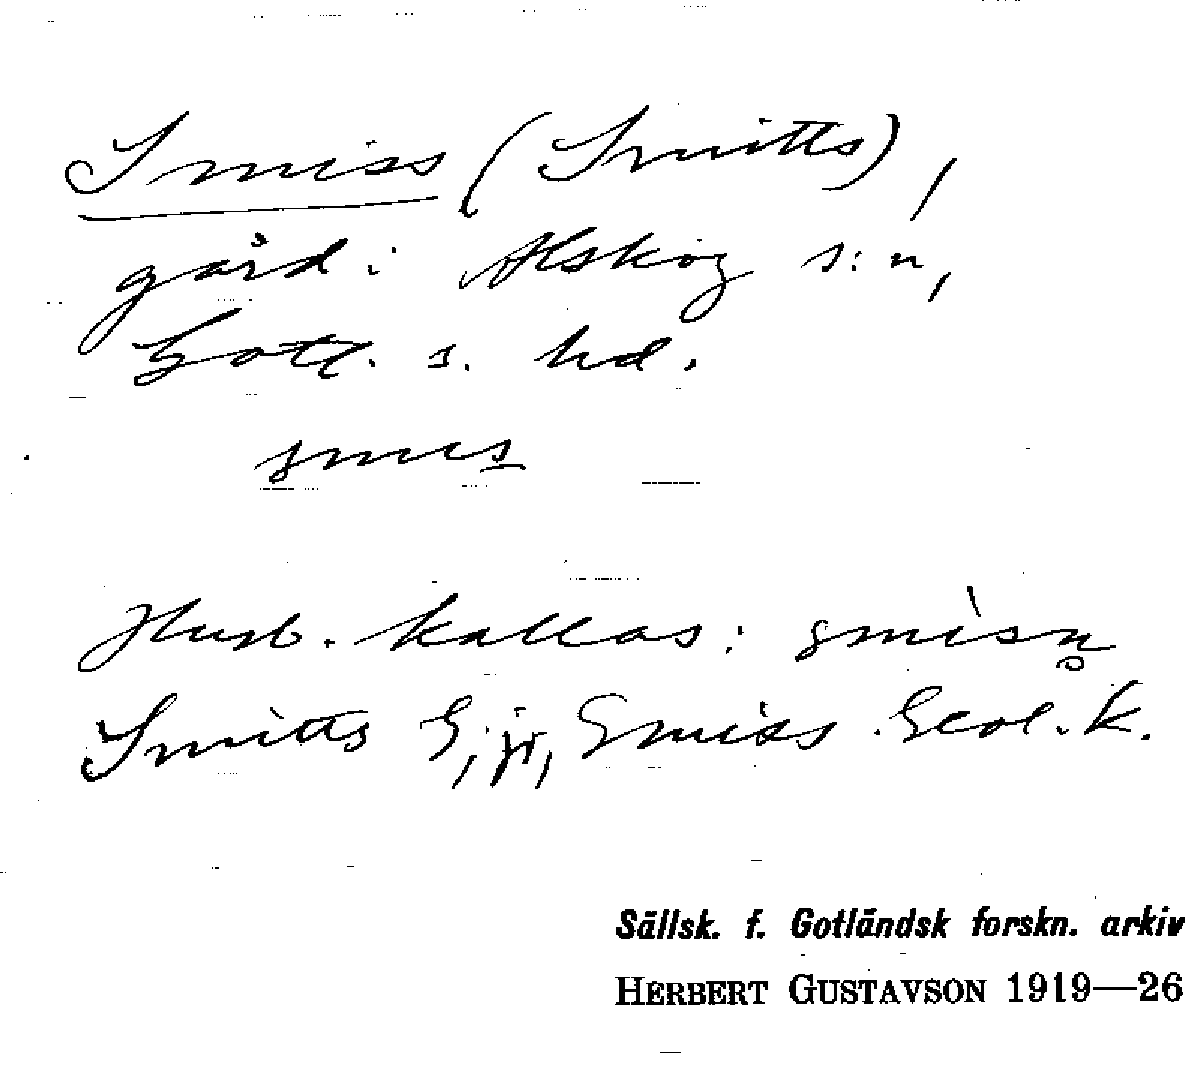 Smiss (Smitts),
gård i Alskog s:n,
Gotl. s. hd.
smis
Husb. kallas: smisn̥
Smitts G, jr, Smiss Geol. k.
Sällsk. f. Gotländsk forskn. arkiv
HERBERT GUSTAVSON 1919—26